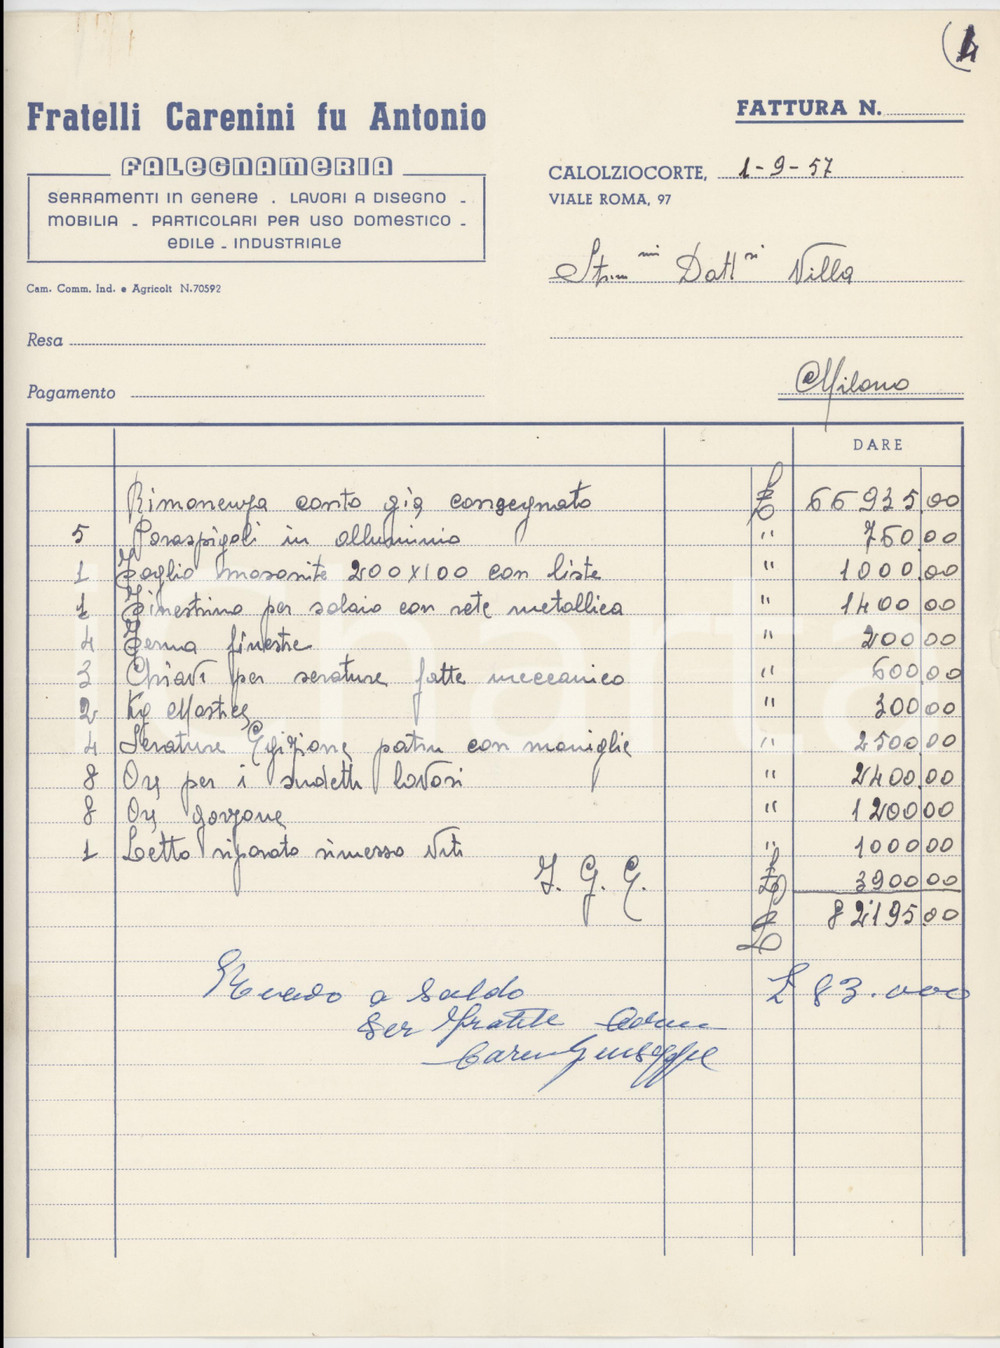 Fratelli Carenini fu Antonio
FALEGNAMERIA
SERRAMENTI IN GENERE . LAVORI A DISEGNO -
MOBILIA - PARTICOLARI PER USO DOMESTICO -
EDILE - INDUSTRIALE
Cam. Comm. Ind. e Agricolt N.70592
FATTURA N.
CALOLZIOCORTE, 1-9-57
VIALE ROMA, 97
Dott ri Villa
Milano
Resa
Pagamento
DARE
Rimanenza conto già consegnato £ 66935,00
5 Paraspigoli in alluminio " 760,00
1 Foglio masonite 200x100 con liste " 1000,00
1 Finestrino per solaio con rete metallica " 1400,00
4 Ferma finestre " 200,00
3 Chiavi per serature fatte meccanico " 600,00
2 Kg Mastice " 300,00
4 Serature patin con maniglie " 2500,00
8 Ore per i sudetti lavori " 2400,00
8 Ore garzone " 1200,00
1 Letto riparato rimesso viti " 1000,00
I. G. E. £ 3900,00
£ 82195,00
a saldo £ 83.000
per Fratelli
Giuseppe
charta